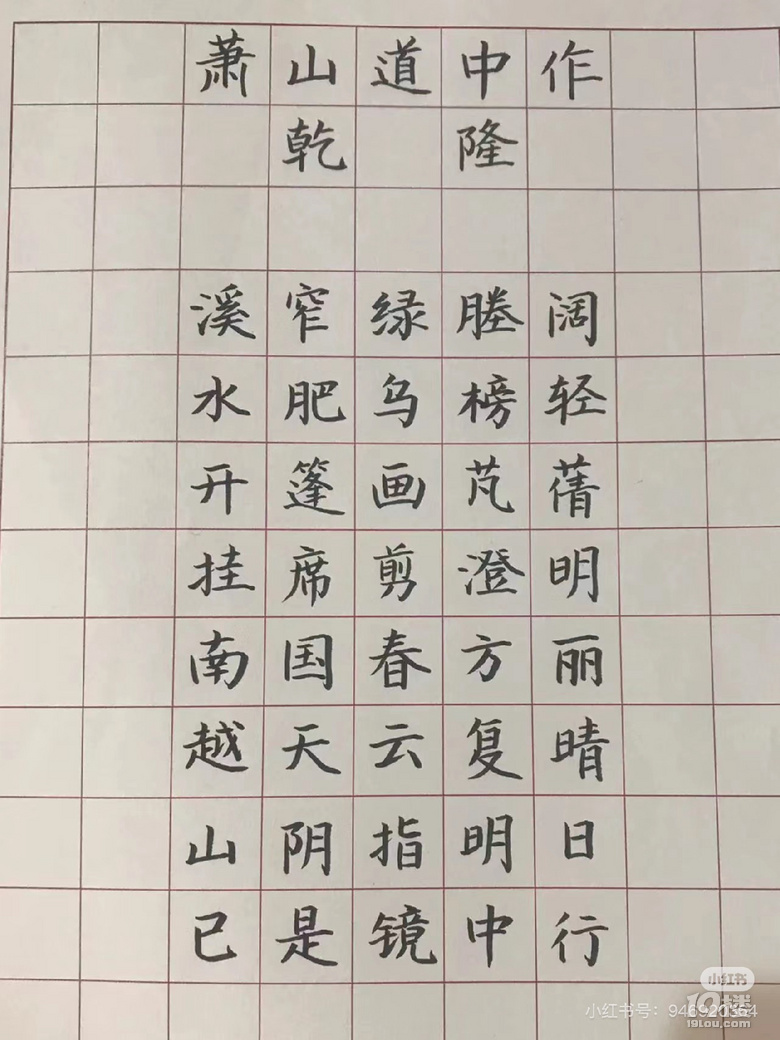 萧山道中作
乾隆
溪窄绿塍阔
水肥乌榜轻
开篷画芃蒨
挂席剪澄明
南国春方丽
越天云复晴
山阴指明日
已是镜中行
小红书
小红书号：946920354
19楼
19lou.com